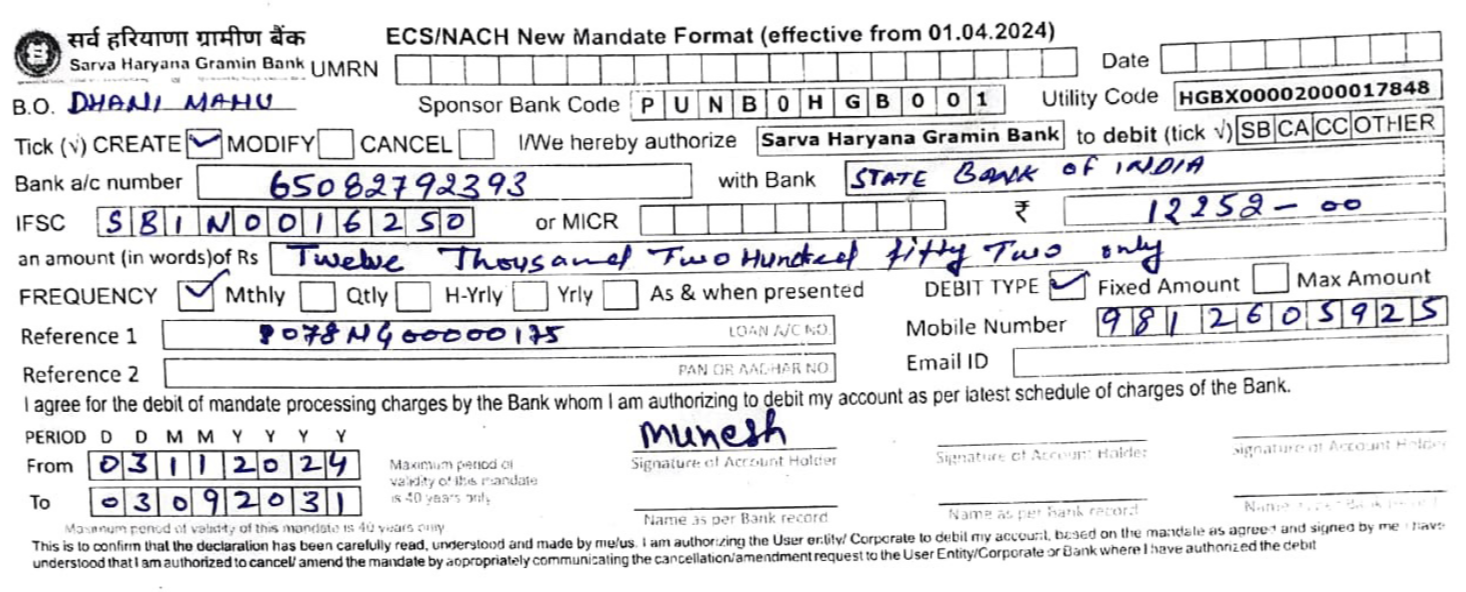 सर्व हरियाणा ग्रामीण बैंक ECS/NACH New Mandate Format (effective from 01.04.2024)
Sarva Haryana Gramin Bank UMRN Date
B.O. DHANI MAHU Sponsor Bank Code PUNB0HGB001 Utility Code HGBX00002000017848
Tick (√) CREATE ✓ MODIFY CANCEL I/We hereby authorize Sarva Haryana Gramin Bank to debit (tick √) SB CA CC OTHER
Bank a/c number 65082792393 with Bank STATE BANK OF INDIA
IFSC SBIN0016250 or MICR ₹ 12252-00
an amount (in words)of Rs Twelve Thousand Two Hundred fifty Two only
FREQUENCY ✓ Mthly Qtly H-Yrly Yrly As & when presented DEBIT TYPE ✓ Fixed Amount Max Amount
Reference 1 8078NG00000175 LOAN A/C NO. Mobile Number 9812605925
Reference 2 PAN OR AADHAR NO. Email ID
I agree for the debit of mandate processing charges by the Bank whom I am authorizing to debit my account as per latest schedule of charges of the Bank.
PERIOD D D M M Y Y Y Y Munesh
From 03112024 Maximum period of validity of this mandate is 40 years only Signature of Account Holder Signature of Account Holder Signature of Account Holder
To 03092031
Name as per Bank record Name as per Bank record Name as per Bank record
Maximum period of validity of this mandate is 40 years only
This is to confirm that the declaration has been carefully read, understood and made by me/us. I am authorizing the User entity/ Corporate to debit my account, based on the mandate as agreed and signed by me I have
understood that I am authorized to cancel/ amend the mandate by appropriately communicating the cancellation/amendment request to the User Entity/Corporate or Bank where I have authorized the debit